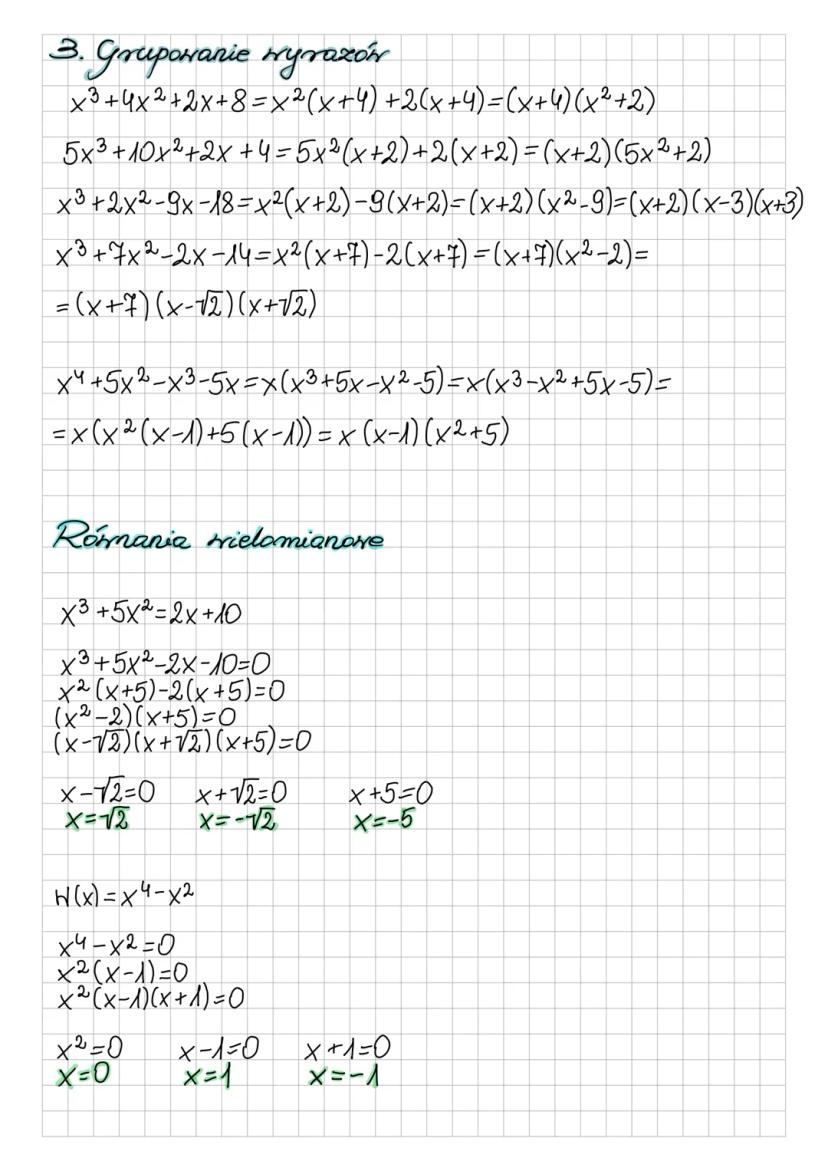 3. Grupowanie wyrazów
x³+4x²+2x+8=x²(x+4)+2(x+4)=(x+4)(x²+2)
5x³+10x²+2x+4=5x²(x+2)+2(x+2)=(x+2)(5x²+2)
x³+2x²-9x-18=x²(x+2)-9(x+2)=(x+2)(x²-9)=(x+2)(x-3)(x+3)
x³+7x²-2x-14=x²(x+7)-2(x+7)=(x+7)(x²-2)=
=(x+7)(x-√2)(x+√2)
x⁴+5x²-x³-5x=x(x³+5x-x²-5)=x(x³-x²+5x-5)=
=x(x²(x-1)+5(x-1))=x(x-1)(x²+5)
Równania wielomianowe
x³+5x²=2x+10
x³+5x²-2x-10=0
x²(x+5)-2(x+5)=0
(x²-2)(x+5)=0
(x-√2)(x+√2)(x+5)=0
x-√2=0 x+√2=0 x+5=0
x=√2 x=-√2 x=-5
W(x)=x⁴-x²
x⁴-x²=0
x²(x-1)=0
x²(x-1)(x+1)=0
x²=0 x-1=0 x+1=0
x=0 x=1 x=-1